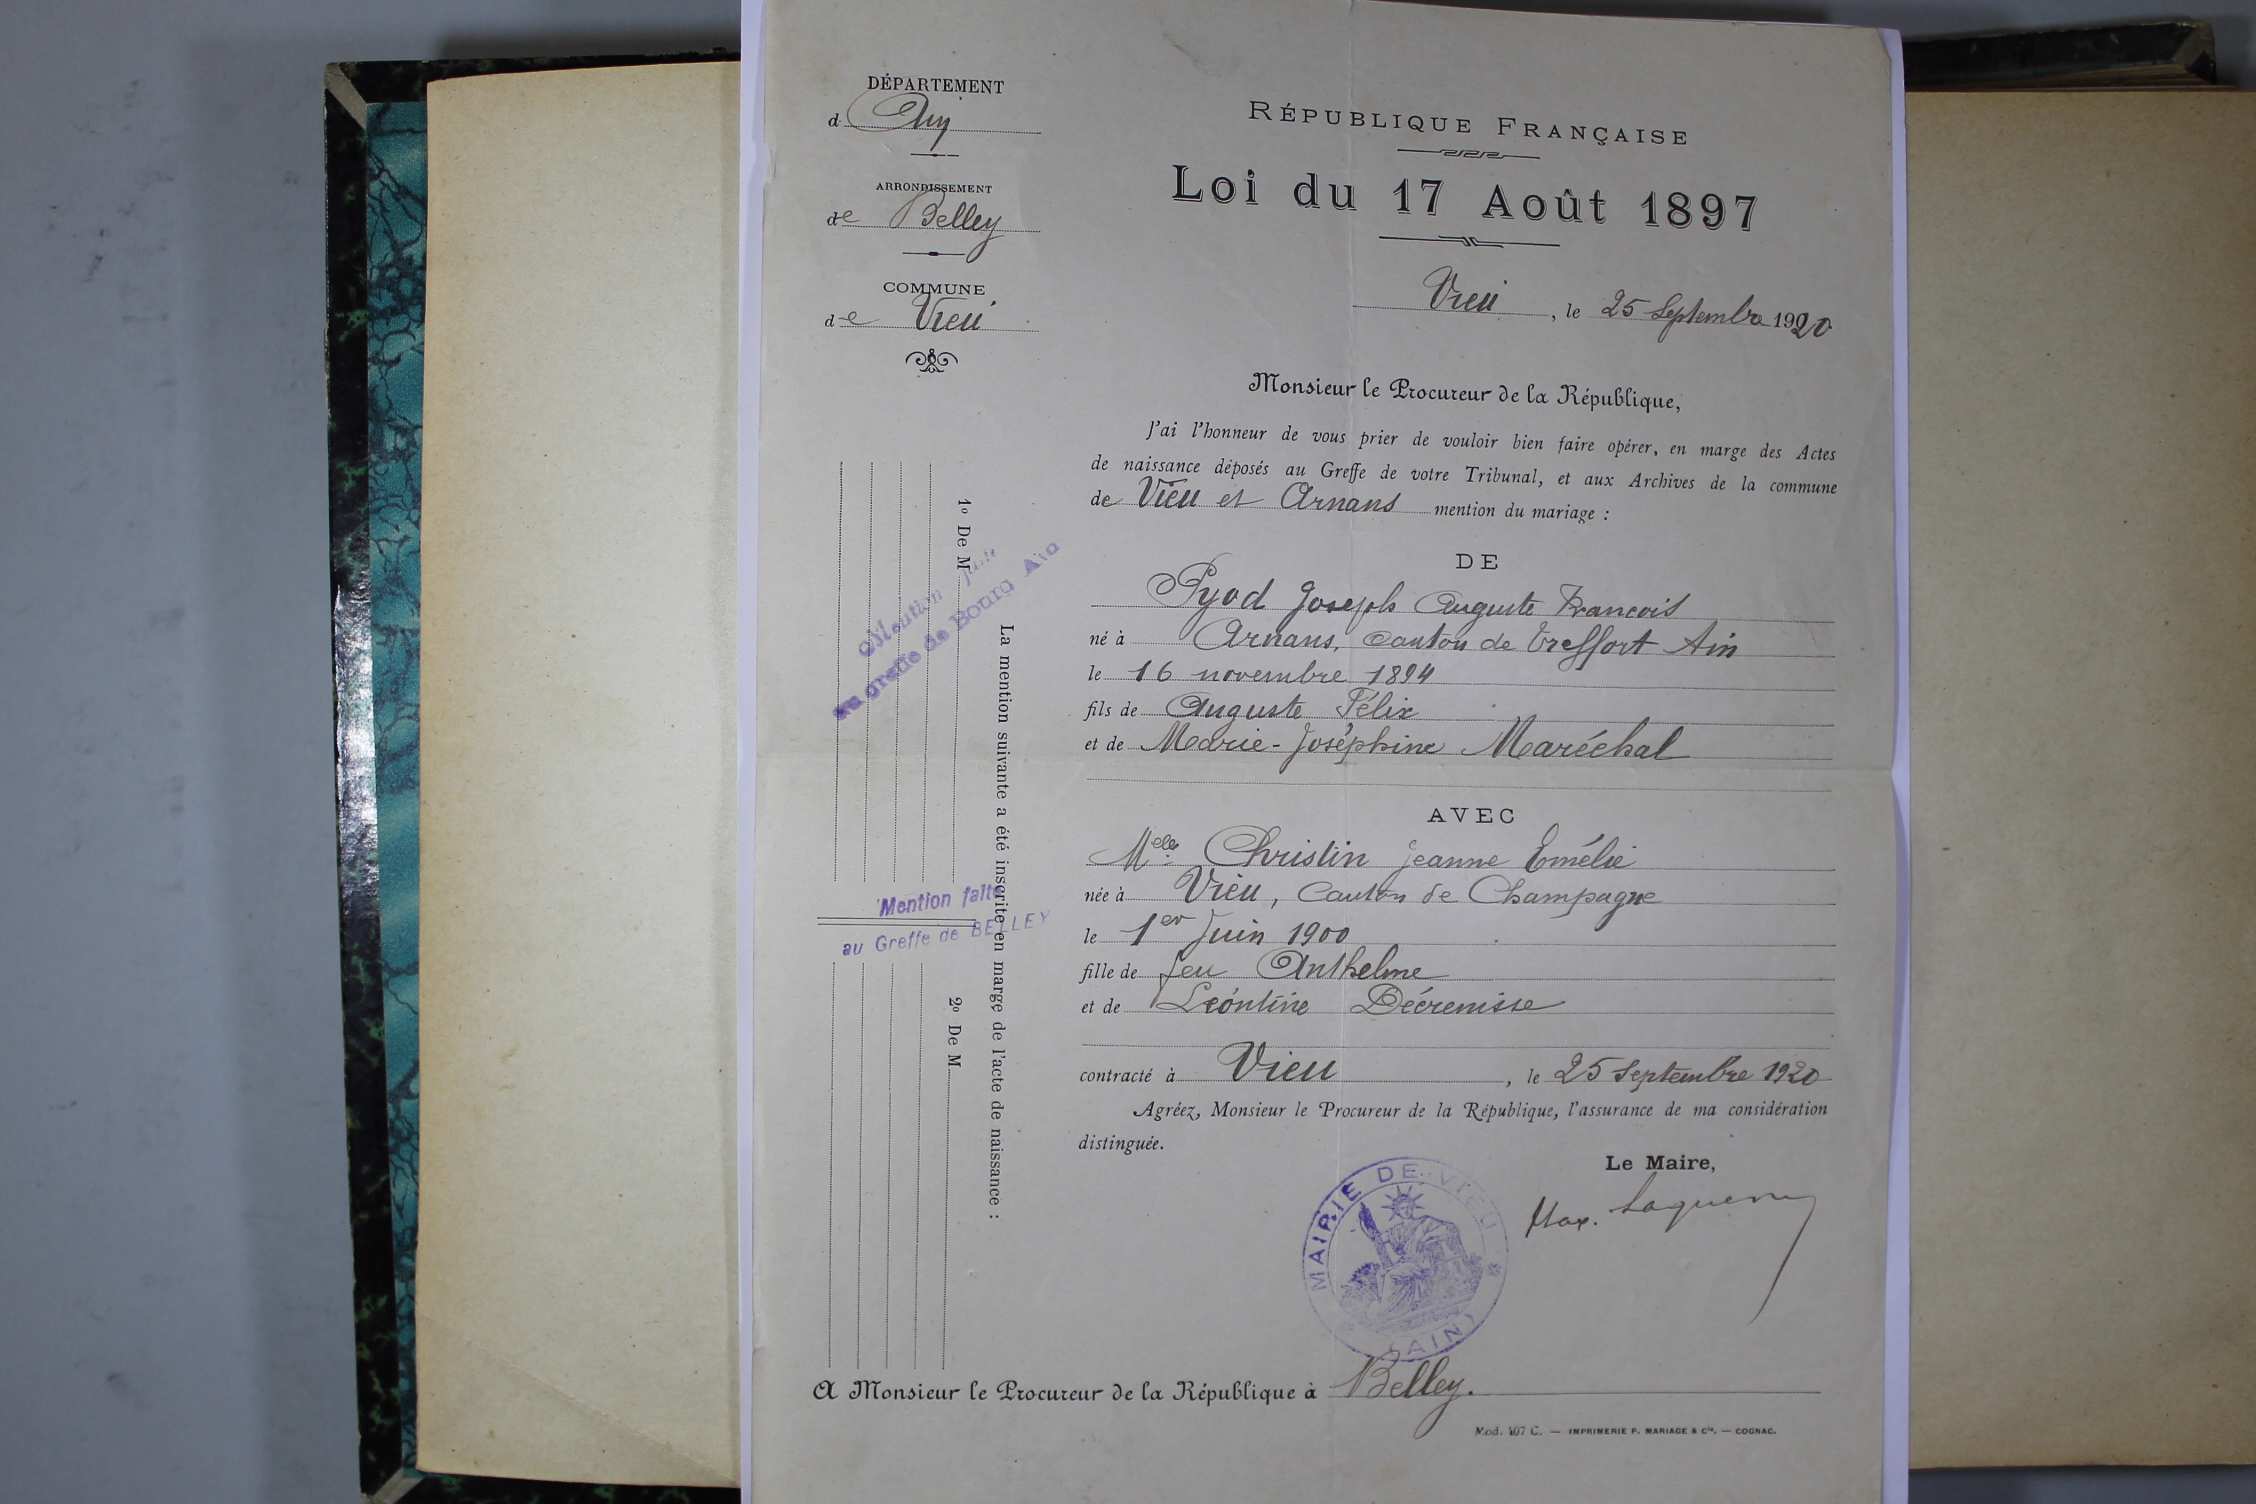 DÉPARTEMENT
d Ain
ARRONDISSEMENT
de Belley
COMMUNE
de Vieu
RÉPUBLIQUE FRANÇAISE
Loi du 17 Août 1897
Vieu, le 25 Septembre 1920
Monsieur le Procureur de la République,
J'ai l'honneur de vous prier de vouloir bien faire opérer, en marge des Actes
de naissance déposés au Greffe de votre Tribunal, et aux Archives de la commune
de Vieu et Arnans mention du mariage :
DE
Pyod Joseph Auguste Francois
né à Arnans, Canton de Treffort Ain
le 16 novembre 1894
fils de Auguste Félix
et de Marie-Joséphine Maréchal
AVEC
Melle Christin Jeanne Emélie
née à Vieu, Canton de Champagne
le 1er Juin 1900
fille de feu Anthelme
et de Léontine Décrenisse
contracté à Vieu, le 25 Septembre 1920
Agréez, Monsieur le Procureur de la République, l'assurance de ma considération
distinguée.
Le Maire,
Max.
MAIRIE DE VIEU
(AIN)
La mention suivante a été inscrite en marge de l'acte de naissance :
1º De M
Mention faite
au greffe de Bourg Ain
Mention faite
au Greffe de BELLEY
2º De M
A Monsieur le Procureur de la République à Belley.
Mod. 107 C. — IMPRIMERIE P. MARIAGE & Cie. — COGNAC.